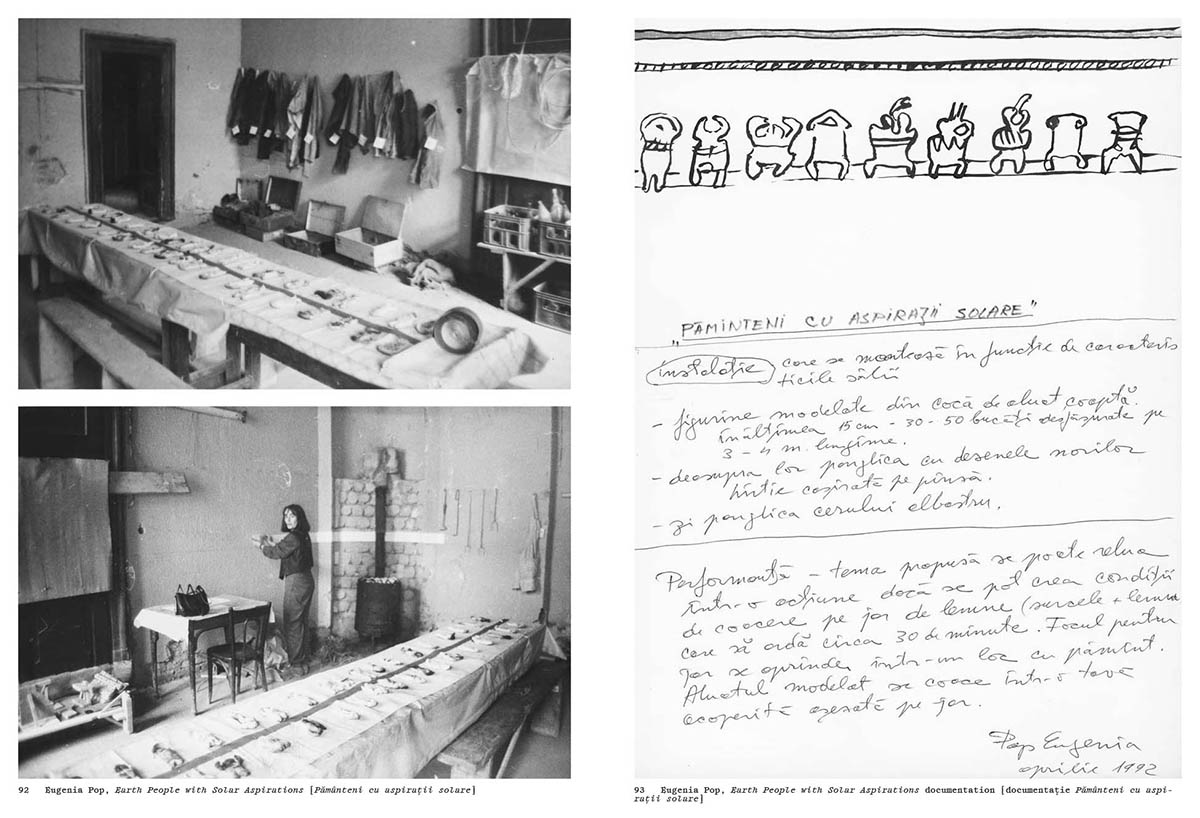 92 Eugenia Pop, Earth People with Solar Aspirations [Pământeni cu aspirații solare]
„PĂMÎNTENI CU ASPIRAȚII SOLARE"
instalație care se montează în funcție de caracteris
ticile sălii
- figurine modelate din cocă de aluat coaptă.
înălțimea 15 cm - 30 - 50 bucăți desfășurate pe
3 - 4 m. lungime.
- deasupra lor panglica cu desenele norilor
hîrtie cașirată pe pînză.
- și panglica cerului albastru.
Performanță - tema propusă se poate relua
într-o acțiune dacă se pot crea condiții
de coacere pe jar de lemne (surcele + lemne
care să ardă circa 30 de minute. Focul pentru
jar se aprinde într-un loc cu pămînt.
Aluatul modelat se coace într-o tavă
acoperită așezată pe jar.
Pop Eugenia
aprilie 1992
93 Eugenia Pop, Earth People with Solar Aspirations documentation [documentație Pământeni cu aspi-
rații solare]